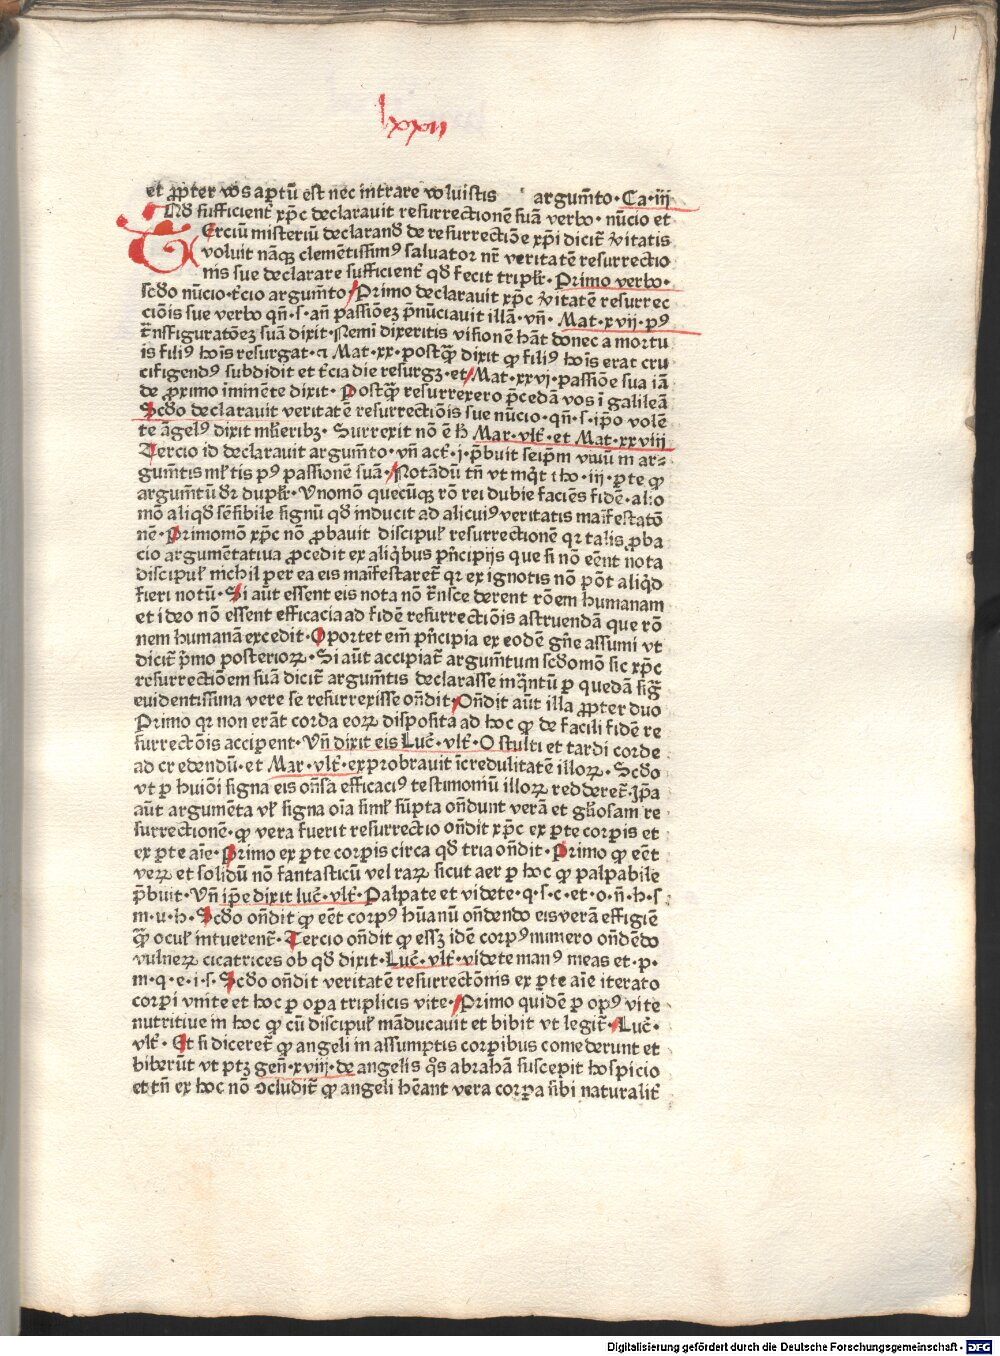 lxxii
et ꝓpter vos aptū est nec intrare voluistis argum̄to · Ca · iij
Qd̄ sufficient̄ xp̄c declarauit resurrectionē suā verbo · nūcio et
Terciū misteriū declarand̄ de resurrectiōe xp̄i dicit̄ v̄itatis
voluit nāqꝫ clementissimꝰ saluator nr̄ veritatē resurrectio
nis sue declarare sufficient̄ qd̄ fecit tripłr · Primo verbo ·
scd̄o nūcio · t̄cio argum̄to · Primo declarauit xp̄c v̄itatē resurrec
ciōis sue verbo qn̄ · s · an̄ passiōeꝫ p̄nūciauit illā · vn̄ · Mat · xvij · pꝰ
t̄nsfiguratōeꝫ suā dixit · Nemī dixeritis visionē hāt donec a mortu
is filiꝰ hoīs resurgat · ⁊ Mat · xx · postꝙ̄ dixit ꝙ filiꝰ hoīs erat cru
cifigendꝰ subdidit et t̄cia die resurgꝫ · et Mat · xxvj · passiōe sua iā
de ꝓximo īminēte dixit · Postꝙ̄ resurrexero p̄cedā vos ī galileā
Scd̄o declarauit veritatē resurrectiōis sue nūcio · qn̄ · s · ip̄o volē
te āgelꝰ dixit mīieribꝫ · Surrexit nō ē h̄ Mar · vlt̄ · et Mat · xxviij
Tercio id declarauit argum̄to · vn̄ act̄ · j · p̄buit seip̄m viuū in ar⸗
gum̄tis mł tis pꝰ passionē suā · Notādū tn̄ vt mq̄t tho · iij · ꝑte ꝙ
argum̄tū dr̄ dupłr · Vnomō quecūqꝫ rō rei dubie faciēs fidē · alio
mō aliqd̄ sēsibile signū qd̄ inducit ad alicuiꝰ veritatis maīfestatō
nē · Primomō xp̄c nō ꝓbauit discipuł resurrectionē qr talis ꝓba
cio argumētatiua ꝓcedit ex aliq̄bus pn̄cipijs que si nō eēnt nota
discipuł nichil per ea eis maīfestaret̄ qr ex ignotis nō pōt aliq̄d
fieri notū · Si aūt essent eis nota nō t̄nsce derent rōem humanam
et ideo nō essent efficacia ad fidē resurrectiōis astruendā que rō
nem humanā excedit · Oportet em̄ pn̄cipia ex eodē gn̄e assumi vt
dicit̄ p̄mo posterioꝝ · Si aūt accipiat̄ argum̄tum scd̄omō sic xp̄c
resurrectiōem suā dicit̄ argum̄tis declarasse inq̄ntū ꝑ quedā siḡ
euidentissima vere se resurrexisse on̄dit · On̄dit aūt illa ꝓpter duo
Primo qr non erāt corda eoꝝ disposita ad hoc ꝙ de facili fidē re
surrectōis accipent · Vn̄ dixit eis Luc̄ · vlt̄ · O stulti et tardi corde
ad credendū · et Mar · vlt̄ · exprobrauit īcredulitatē illoꝝ · Scd̄o
vt ꝑ huiōi signa eis on̄sa efficaciꝰ testimoniū illoꝝ redderet̄ · Jp̄a
aūt argumēta vł signa oīa simł sūpta on̄dunt verā et gl̄iosam re
surrectionē · ꝙ vera fuerit resurrectio on̄dit xp̄c ex ꝑte corꝑis et
ex ꝑte aīe · Primo ex ꝑte corꝑis circa qd̄ tria on̄dit · Primo ꝙ eēt
veꝝ et solidū nō fantasticū vel raꝝ sicut aer ꝑ hoc ꝙ palpabile
p̄buit · Vn̄ ip̄e dixit luc̄ · vlt̄ · Palpate et videte · q · s · c · et · o · n̄ · h · s
m · u · h · Scd̄o on̄dit ꝙ eēt corpꝰ hūanū on̄dendo eis verā effigiē
ꝙ̄ ocuł intuerent̄ · Tercio on̄dit ꝙ essꝫ idē corpꝰ numero on̄dēdo
vulneꝝ cicatrices ob qd̄ dixit · Luc̄ · vlt̄ · videte manꝰ meas et · p ·
m · q · e · i · s · Scd̄o on̄dit veritatē resurrectōnis ex ꝑte aīe iterato
corꝑi vnite et hoc ꝑ oꝑa triplicis vite · Primo quidē ꝑ opꝰ vite
nutritiue in hoc ꝙ cū discipuł māducauit et bibit vt legit̄ · Luc̄ ·
vlt̄ · Et si diceret̄ ꝙ angeli in assumptis corꝑibus comederunt et
biberūt vt ptꝫ gen̄ · xviij · de angelis q̄s abrahā suscepit hospicio
et tn̄ ex hoc nō ↄcludit̄ ꝙ angeli hēant vera corꝑa sibi naturalit̄
Digitalisierung gefördert durch die Deutsche Forschungsgemeinschaft - DFG